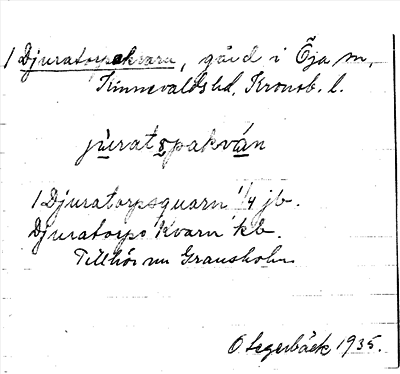 1 Djuratorpakvarn, gård i Öja sn,
Kinnevalds hd, Kronob. l.
jùratspakván
1 Djuratorpsquarn 1/4 jb.
Djuratorps Kvarn kb.
Tillhör nu Gransholm
O Segerbäck 1935.